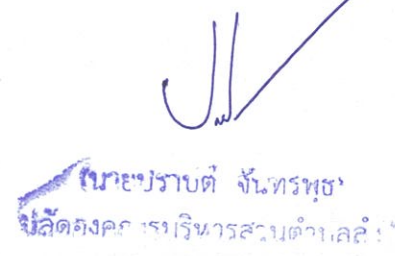 (นายปราบต์ จันทรพุธ
ปลัดองค์การบริหารส่วนตำบล